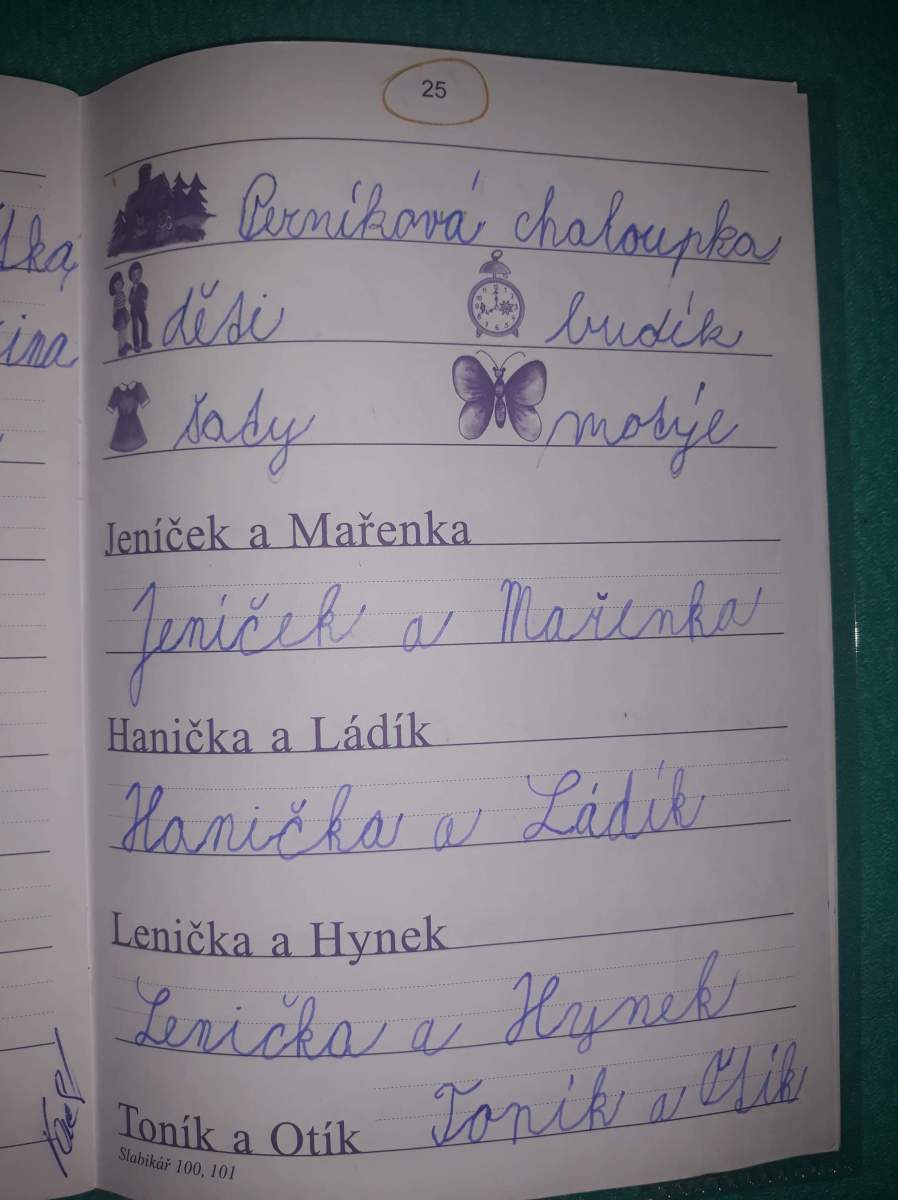 25
Perníková chaloupka
děti budík
šaty motýle
Jeníček a Mařenka
Jeníček a Mařenka
Hanička a Ládík
Hanička a Ládík
Lenička a Hynek
Lenička a Hynek
Toník a Otík Toník a Otík
Slabikář 100, 101